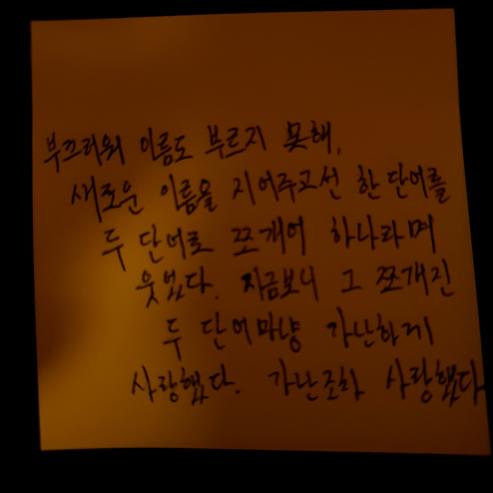 부끄러워 이름도 부르지 못해,
새로운 이름을 지어주고선 한 단어를
두 단어로 쪼개어 하나라며
웃었다. 지금보니 그 쪼개진
두 단어마냥 가난하게
사랑했다. 가난조차 사랑했다